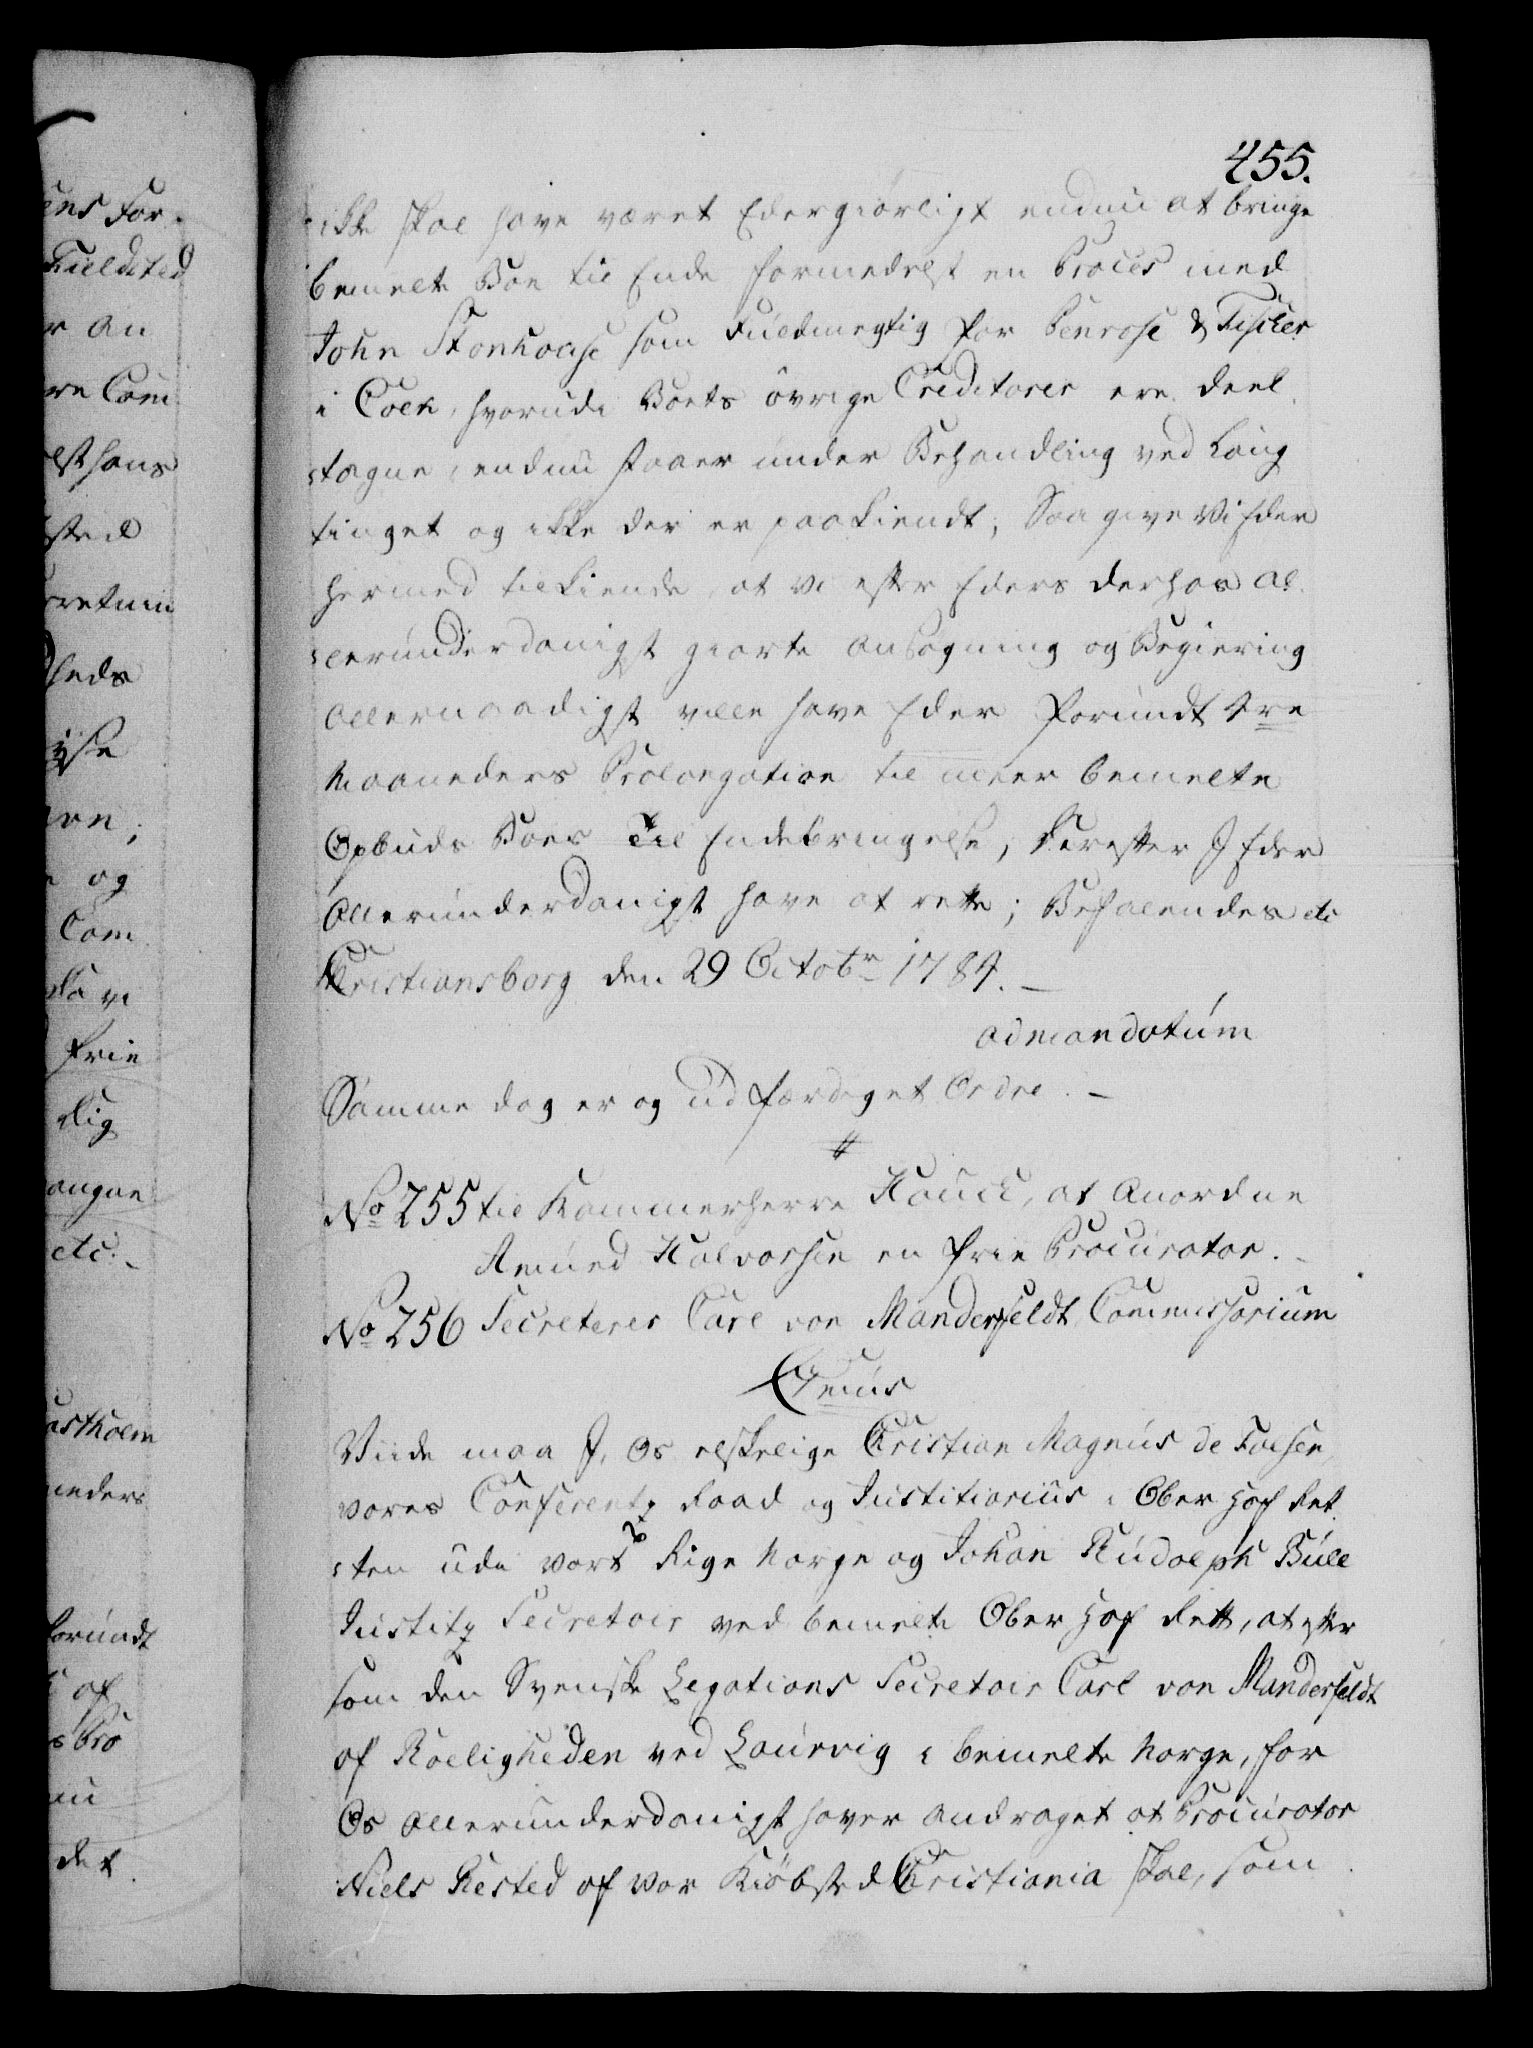 455.
ikke skal have været Eder giørligt endnu at bringe
bemelte Boe til Ende formedelst en Proces med
John Stonhouse som Fuldmegtig for Penrose & Fischer
i Cock, hvorudi Boets övrige Creditorer ere deel
tagne, endnu staaer under Behandling ved Laug
tinget og ikke der er paakiendt; Saa give Vi Eder
hermed tilkiende, at vi efter Eders derhos al
lerunderdanigst giorte Ansøgning og Begiering
allernaadigst ville have Eder forundt 4re
Maaneders Prolongation til meer bemelte
Opbuds Boes Til Endebringelse; Derefter I Eder
allerunderdanigst have at rette; Befalendes etc
Christiansborg den 29 Octobr 1784. —
ad mandatum
Samme dag er og udfærdiget Ordre. —
#
No 255 til Kammerherre Hauch, at Anordne
Amund Halvorsen en frie Procurator. —
No 256 Secreterer Carl von Manderfeldt, Commissorium
Genus
Viide maa I, Os elskelige Christian Magnus de Falsen,
vores Conferentz Raad og Justitiarius i Ober Hof Ret
ten udi vort Rige Norge og Johan Rudolph Bull
Justitz Secretair ved bemelte Ober Hof Rett, at efter
som den Svenske Legations Secretair Carl von Manderfeldt
af Roeligheden ved Laurvig i bemelte Norge, for
Os allerunderdanigst haver andraget at Procurator
Niels Rested af vor Kiöbsted Christiania skal, som